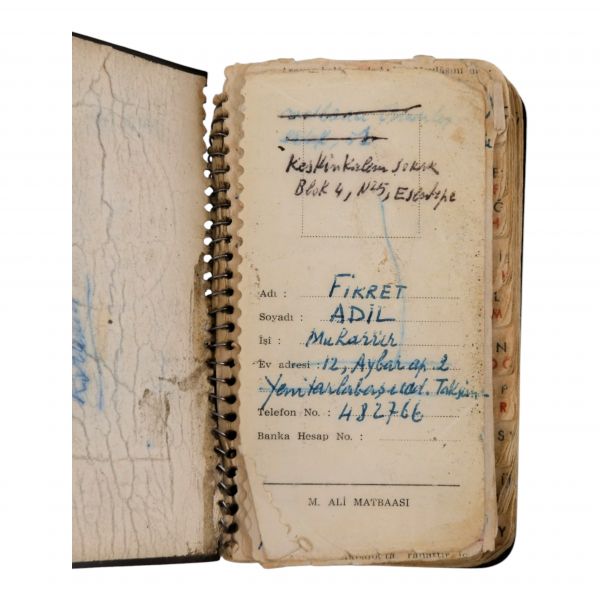 Keskinkalem sokak
Blok 4, No 5, Esentepe
Adı : FİKRET
Soyadı : ADİL
İşi : Muharrir
Ev adresi : 12, Aybar ap. 2
Yenitarlabaşı cad. Taksim
Telefon No. : 482766
Banka Hesap No. :
M. ALİ MATBAASI
E
F
G
H
I
L
M
N
P
R
S